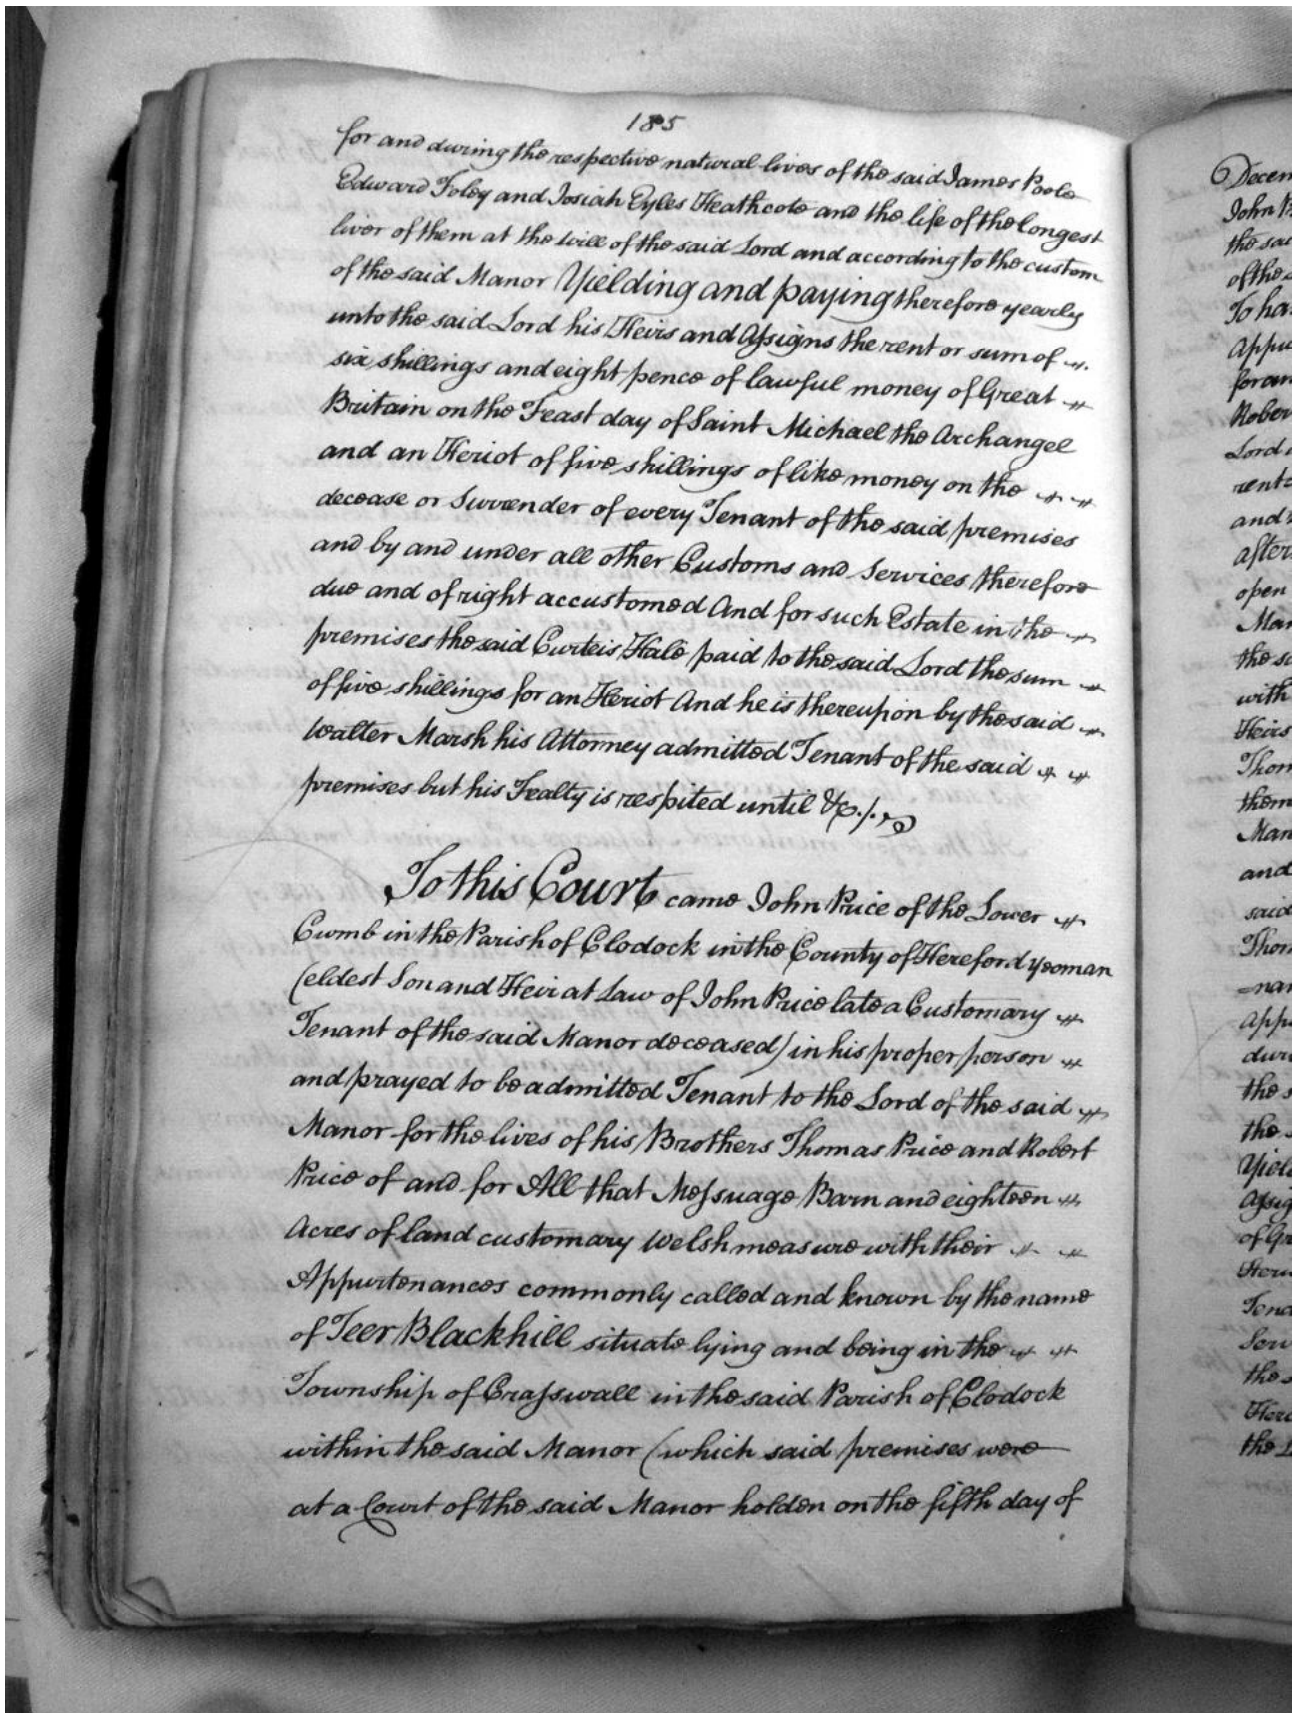 185
for and during the respective natural lives of the said James Poole
Edward Foley and Josiah Eyles Heathcote and the life of the longest
liver of them at the Will of the said Lord and according to the custom
of the said Manor Yielding and paying therefore yearly
unto the said Lord his Heirs and Aſsigns the rent or sum of
six shillings and eight pence of lawful money of Great
Britain on the Feast day of Saint Michael the Archangel
and an Heriot of five shillings of like money on the
decease or Surrender of every Tenant of the said premises
and by and under all other Customs and Services therefore
due and of right accustomed And for such Estate in the
premises the said Curteis Hale paid to the said Lord the sum
of five shillings for an Heriot And he is thereupon by the said
Walter Marsh his Attorney admitted Tenant of the said
premises but his Fealty is respited until &c.
To this Court came John Price of the Lower
Cwmb in the Parish of Clodock in the County of Hereford yeoman
(eldest Son and Heir at Law of John Price late a Customary
Tenant of the said Manor deceased) in his proper person
and prayed to be admitted Tenant to the Lord of the said
Manor for the lives of his Brothers Thomas Price and Robert
Price of and for All that Meſsuage Barn and eighteen
Acres of land customary Welsh measure with their
Appurtenances commonly called and known by the name
of Teer Blackhill situate lying and being in the
Township of Craſswall in the said Parish of Clodock
within the said Manor (which said premises were
at a Court of the said Manor holden on the fifth day of
Decem
John P
the sai
of the
To ha
Appu
for an
Rober
Lord
rent
and
after
open
Man
the sa
with
Heirs
Thom
them
Man
and
said
Thom
=nan
Appu
duri
the s
the
Yield
Aſsig
of Gr
Heri
Tena
Serv
the
Here
the L